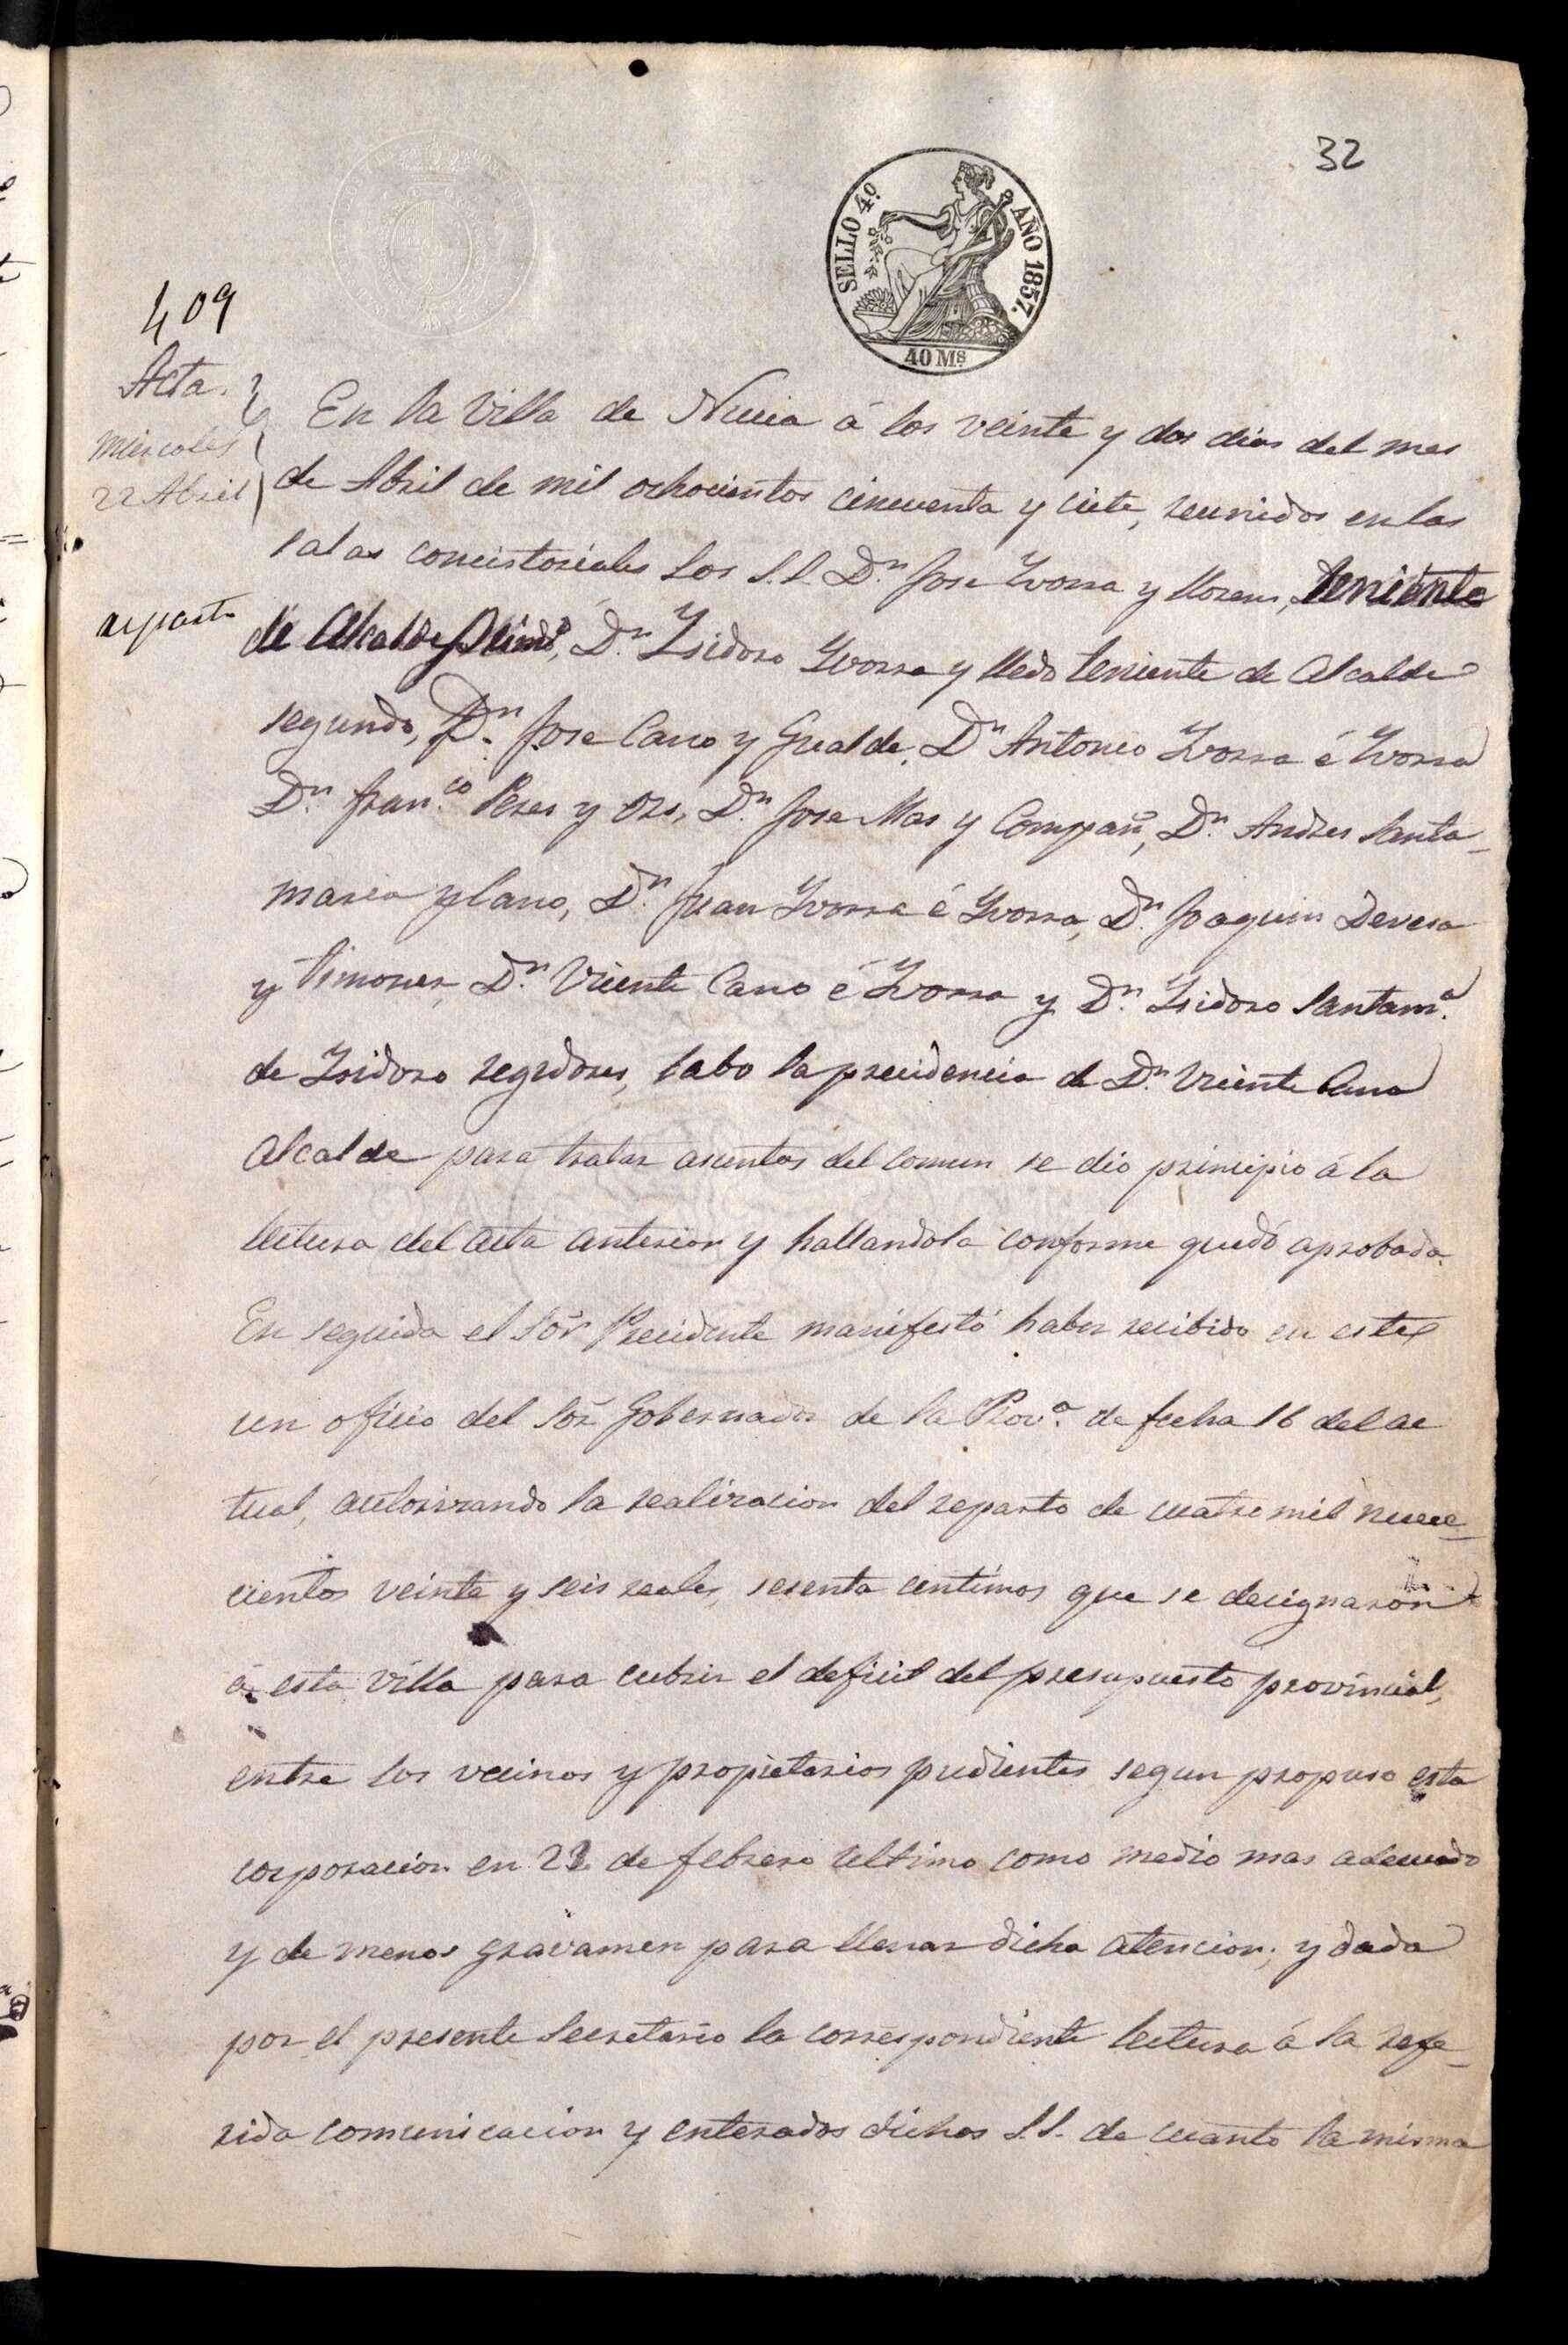 32
SELLO 4º AÑO 1857.
40 Ms
409
Acta.
miercoles
22 Abril
reparto
En la Villa de Nucia á los veinte y dos dias del mes
de Abril de mil ochocientos cincuenta y ciete, reunidos en las
salas concistoriales los S.S. Dn. Jose Yvorra y Llorens, teniente
de Alcalde primo, Dn. Ysidoro Yvorra y lledo teniente de Alcalde
segundo, Dn. Jose Cano y Gualde, Dn Antonio Yvorra é Yvorra
Dn. Franco. Peres y Ors, Dn. Jose Mas y Compañ, Dn. Andres Santa-
maria y Cano, Dn. Juan Yvorra é Yvorra, Dn. Joaquin Devesa
y Timoner, Dn. Vicente Cano é Yvorra y Dn. Ysidoro Santama.
de Ysidoro regidores, babo la precidencia de Dn. Vicente Cano
Alcalde para tratar asuntos del comun se dio principio á la
lectura del acta anterior y hallandola conforme quedó aprobada.
En seguida el Sor Precidente manifestó haber recibido en este
un oficio del Sor Gobernador de la Prova. de fecha 16 del ac
tual, autorizando la realizacion del reparto de cuatro mil nuve-
cientos veinte y seis reales, sesenta centimos que se decignaron
á esta villa para cubrir el deficit del presupuesto provincial,
entre los vecinos y propietarios pudientes segun propuso esta
corporacion en 22 de febrero ultimo como medio mas adecuado
y de menos gravamen para llenar dicha atencion; y dada
por el presente Secretario la correspondiente lectura á la refe-
rida comunicacion y enterados dichos S.S. de cuanto la misma